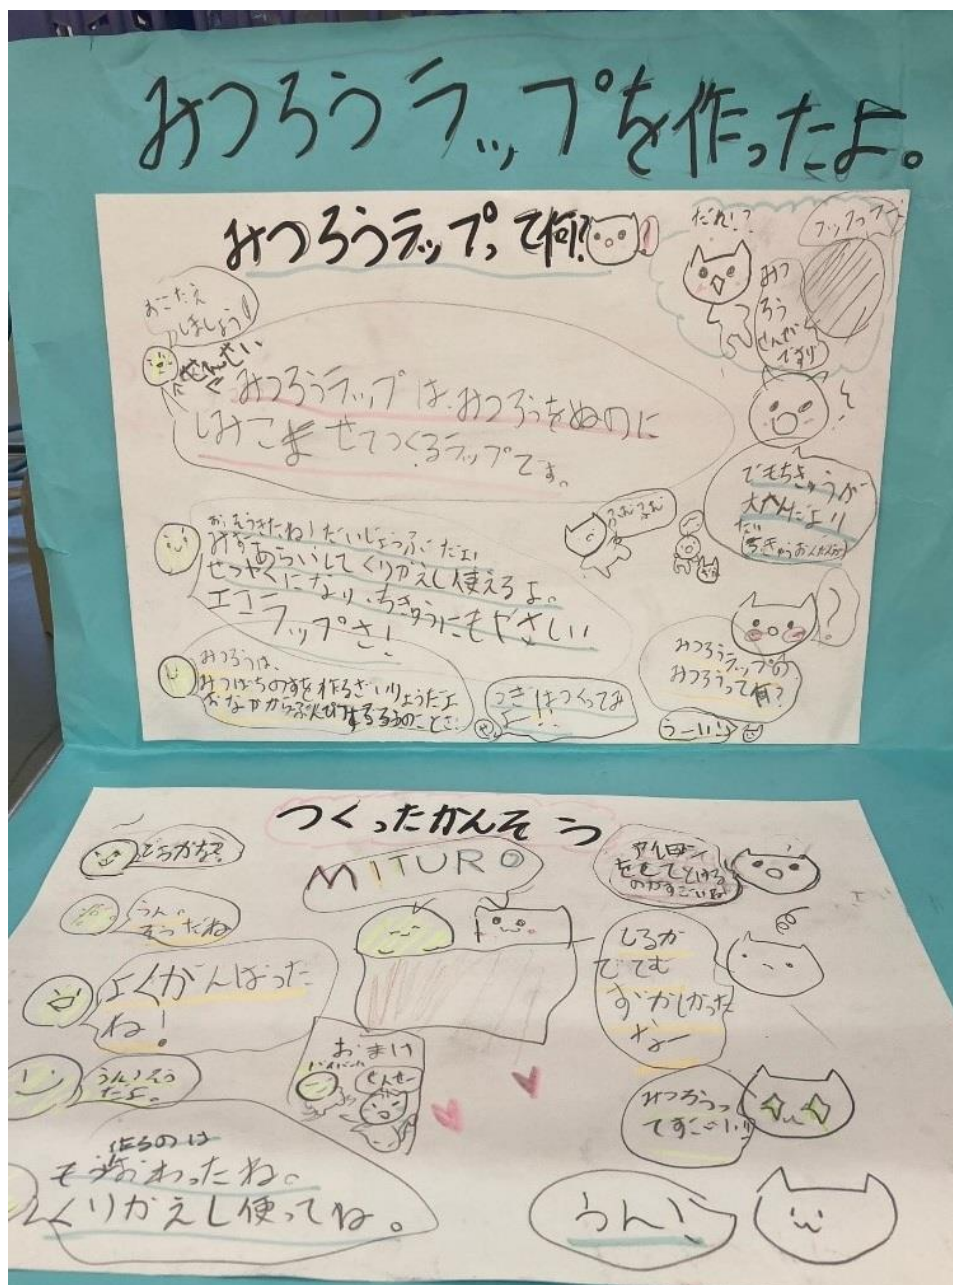 みつろうラップを作ったよ。
みつろうラップって何?
だれ!?
みつ
ろう
せんせい
です!!
おこたえ
しましょう!
せんせい
みつろうラップは、みつろうをぬのに
しみこませてつくるラップです。
でもちきゅうが
大へんだよ!!
おっそうきたね!だいじょうぶだよ!
みずあらいしてくりかえし使えるよ。
せつやくになり、ちきゅうにもやさしい
エコラップさ!
ふむふむ
?
みつろうラップの
みつろうって何?
みつろうは、
みつばちのすを作るざいりょうだよ
おなかからぶんぴつするろうのことさ。
つぎはつくってみ
よー!!
うーい!!
つくったかんそう
どうかな?
MITURO
アイロン
をしてとける
のがすごいね
うん。
そうだね
しるが
でてむ
ずかしかった
なー
よくがんばった
ね!
おまけ
バイバーイ
せんせー
うん!そう
だよ。
みつろうっ
てすごーい!!
作るのは
もうおわったね。
くりかえし使ってね。
うん!